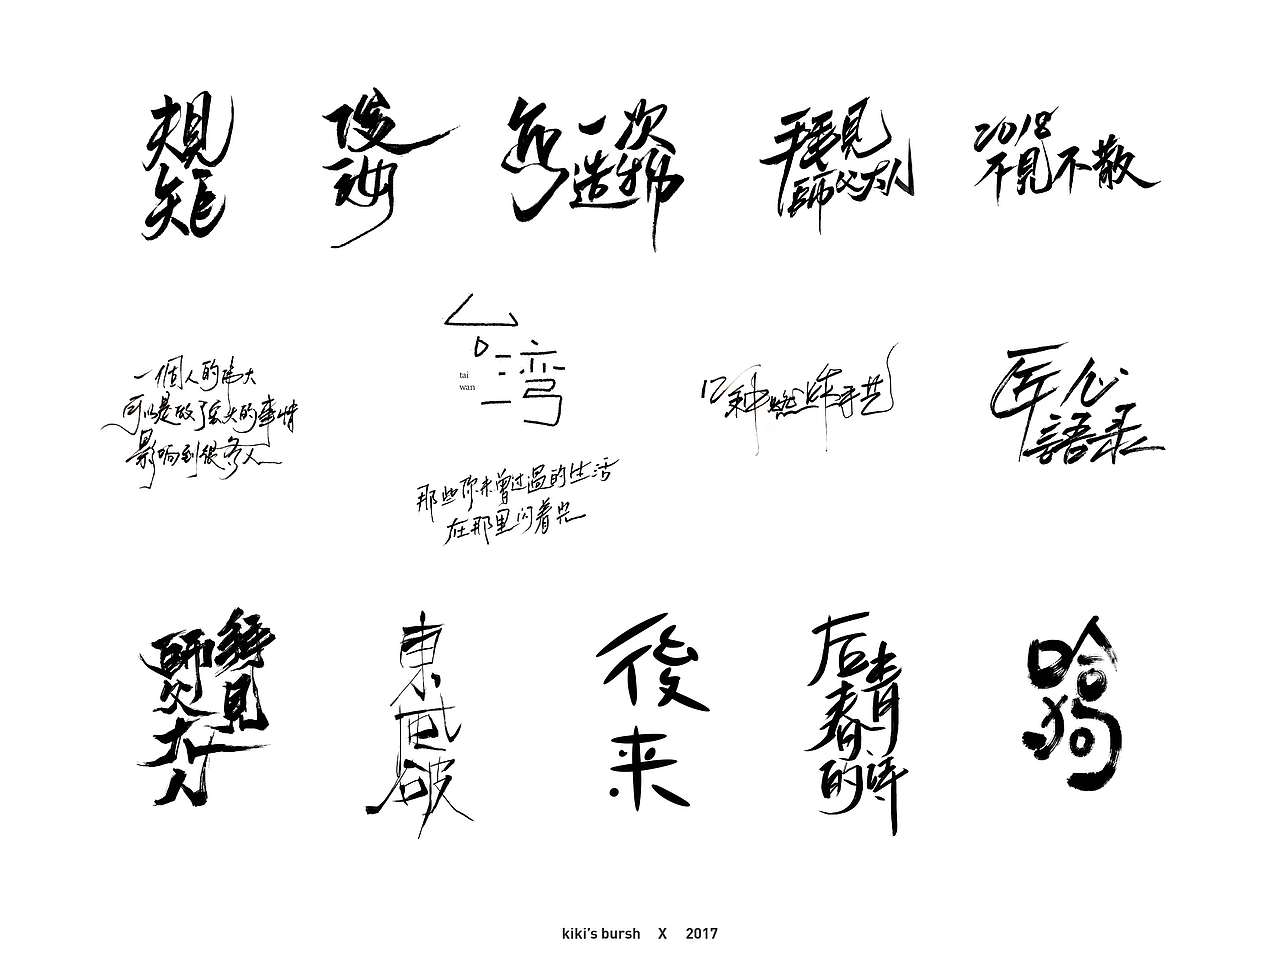 規
矩
一次
造物
拜見
師父大人
2018
不見不散
一個人的伟大
可以是做了多大的事情
影响到很多人
台
湾
tai
wan
那些你未曾过過的生活
在那里闪着光
12种
手艺
匠心
語录
拜見
師父大人
東
風
破
後
来
后青
春
的诗
哈
狗
kiki's bursh X 2017